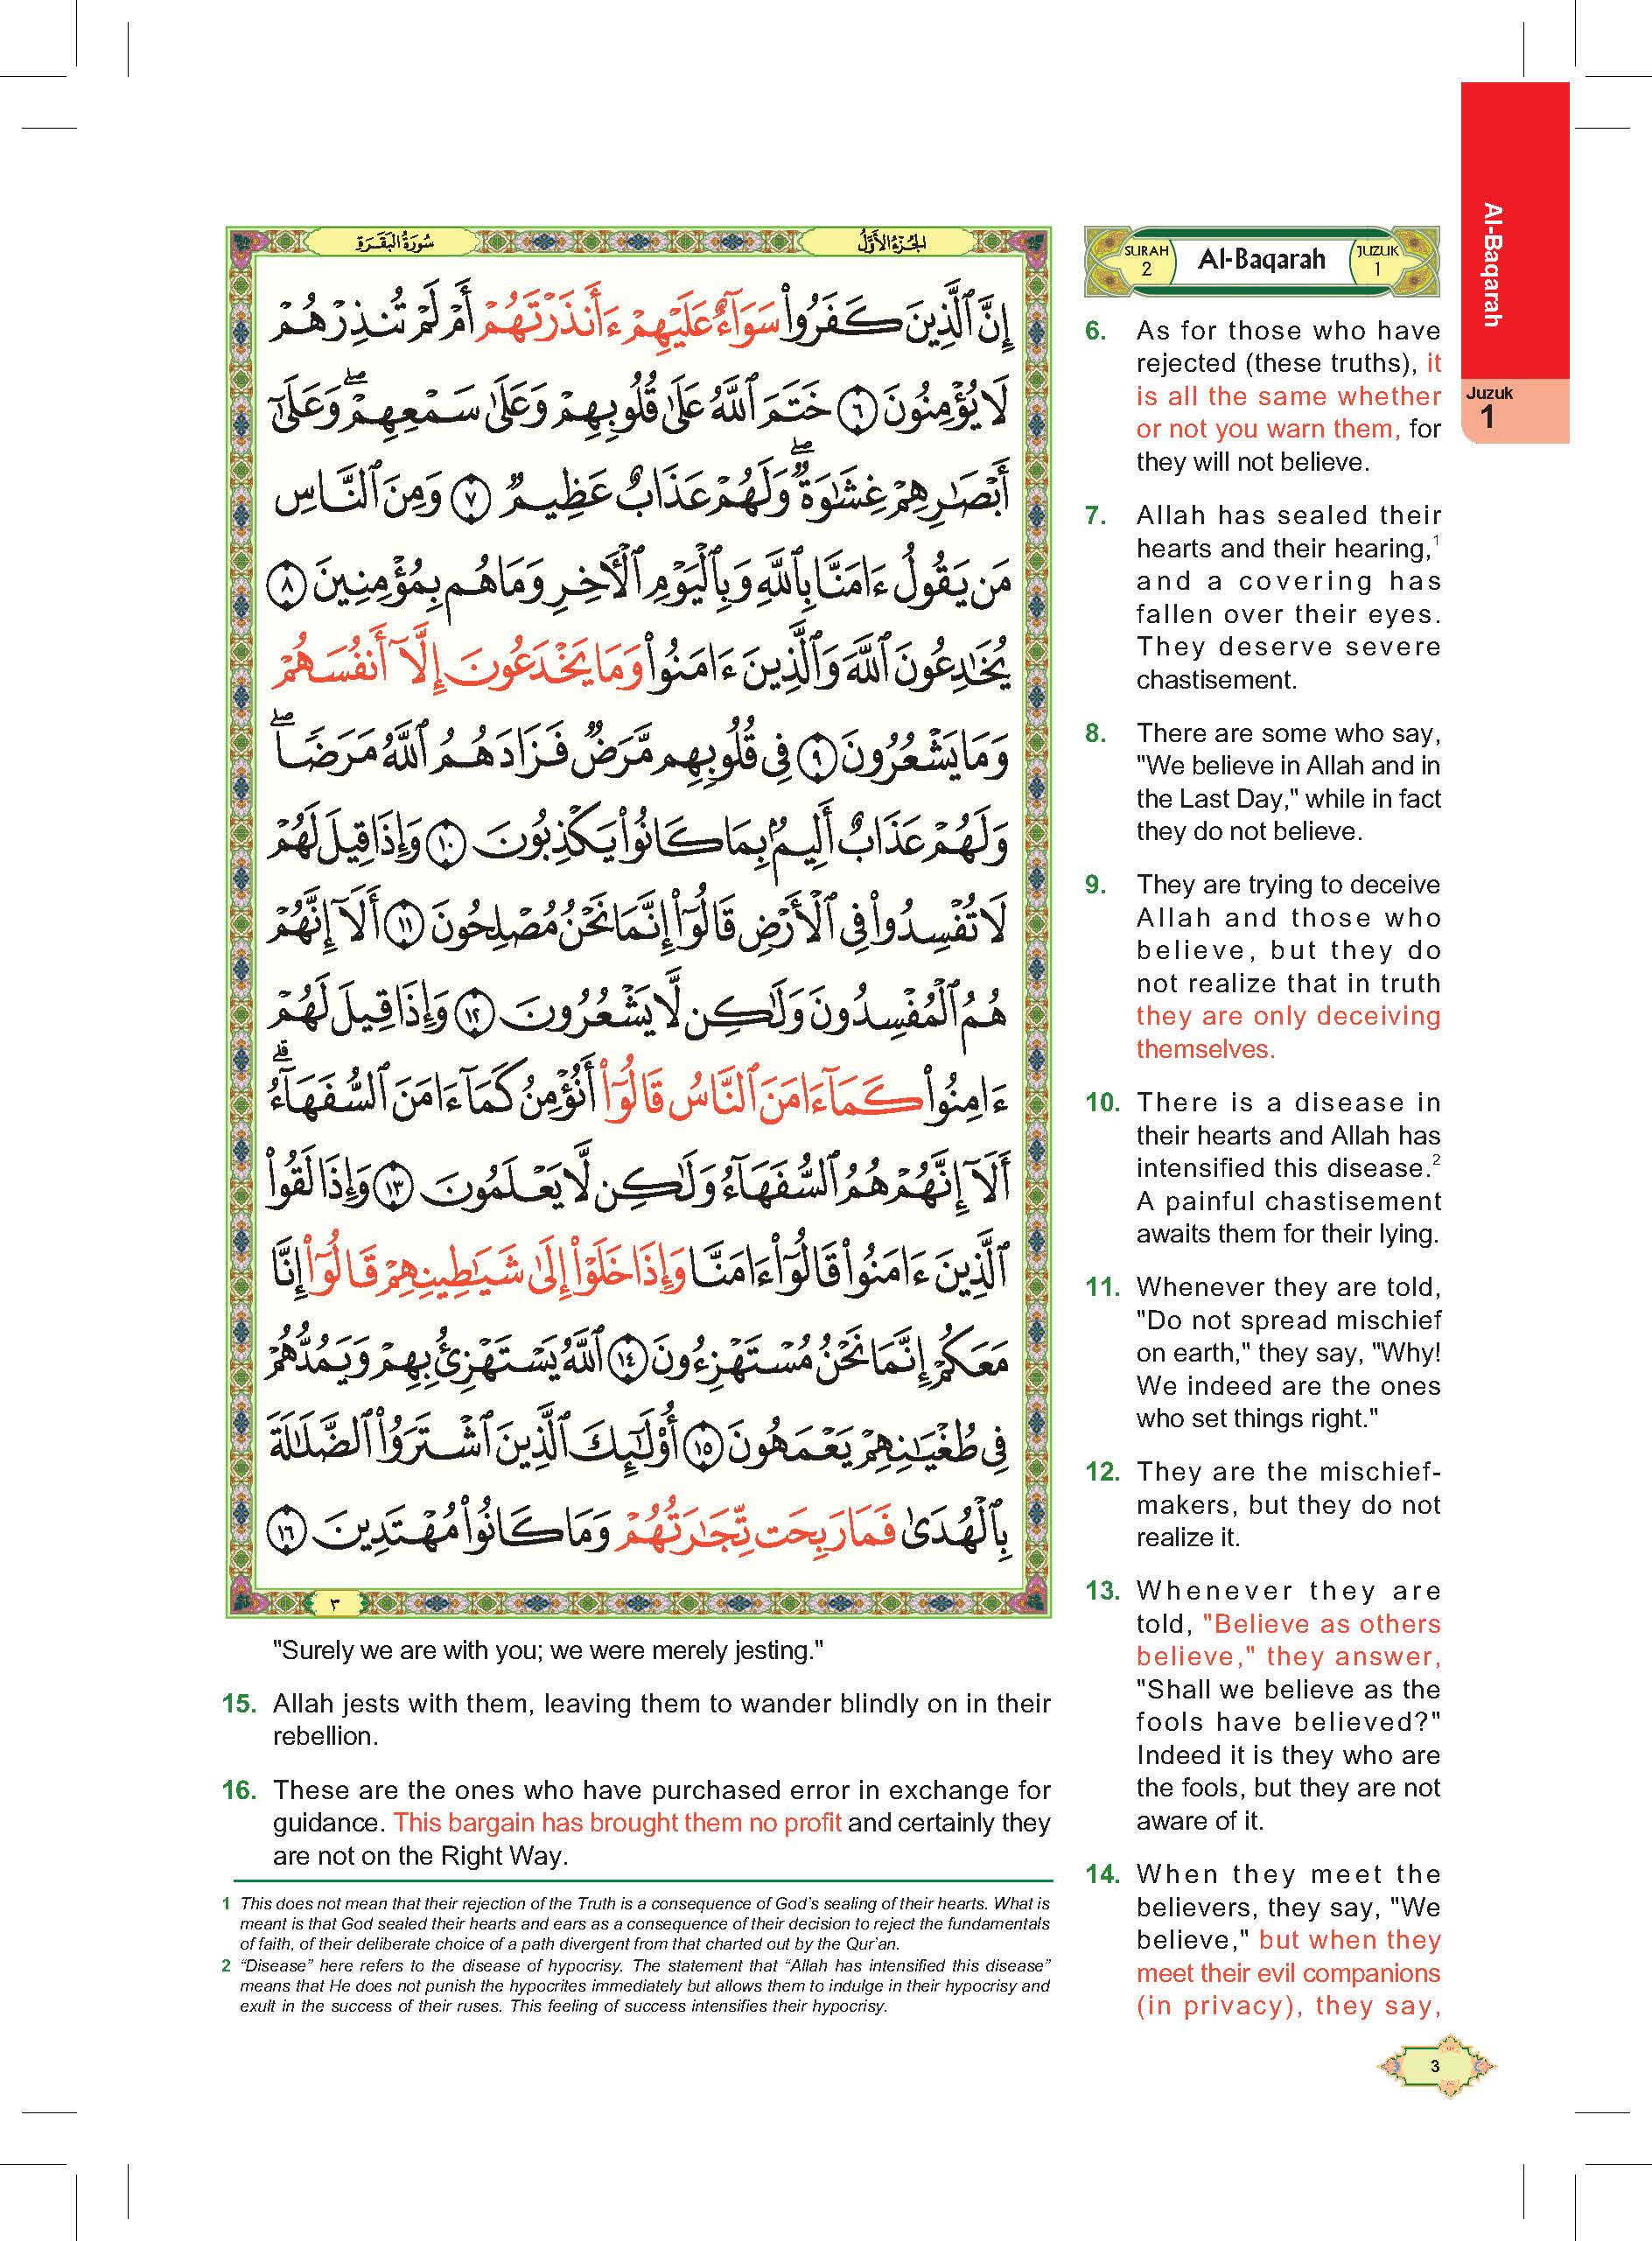 سُورَةُ البَقَرَةِ
الجُزْءُ الأَوَّلُ
إِنَّ ٱلَّذِينَ كَفَرُوا۟ سَوَآءٌ عَلَيْهِمْ ءَأَنذَرْتَهُمْ أَمْ لَمْ تُنذِرْهُمْ
لَا يُؤْمِنُونَ ٦ خَتَمَ ٱللَّهُ عَلَىٰ قُلُوبِهِمْ وَعَلَىٰ سَمْعِهِمْ ۖ وَعَلَىٰٓ
أَبْصَـٰرِهِمْ غِشَـٰوَةٌ ۖ وَلَهُمْ عَذَابٌ عَظِيمٌ ٧ وَمِنَ ٱلنَّاسِ
مَن يَقُولُ ءَامَنَّا بِٱللَّهِ وَبِٱلْيَوْمِ ٱلْـَٔاخِرِ وَمَا هُم بِمُؤْمِنِينَ ٨
يُخَـٰدِعُونَ ٱللَّهَ وَٱلَّذِينَ ءَامَنُوا۟ وَمَا يَخْدَعُونَ إِلَّآ أَنفُسَهُمْ
وَمَا يَشْعُرُونَ ٩ فِى قُلُوبِهِم مَّرَضٌ فَزَادَهُمُ ٱللَّهُ مَرَضًا ۖ
وَلَهُمْ عَذَابٌ أَلِيمٌۢ بِمَا كَانُوا۟ يَكْذِبُونَ ١٠ وَإِذَا قِيلَ لَهُمْ
لَا تُفْسِدُوا۟ فِى ٱلْأَرْضِ قَالُوٓا۟ إِنَّمَا نَحْنُ مُصْلِحُونَ ١١ أَلَآ إِنَّهُمْ
هُمُ ٱلْمُفْسِدُونَ وَلَـٰكِن لَّا يَشْعُرُونَ ١٢ وَإِذَا قِيلَ لَهُمْ
ءَامِنُوا۟ كَمَآ ءَامَنَ ٱلنَّاسُ قَالُوٓا۟ أَنُؤْمِنُ كَمَآ ءَامَنَ ٱلسُّفَهَآءُ ۗ
أَلَآ إِنَّهُمْ هُمُ ٱلسُّفَهَآءُ وَلَـٰكِن لَّا يَعْلَمُونَ ١٣ وَإِذَا لَقُوا۟
ٱلَّذِينَ ءَامَنُوا۟ قَالُوٓا۟ ءَامَنَّا وَإِذَا خَلَوْا۟ إِلَىٰ شَيَـٰطِينِهِمْ قَالُوٓا۟ إِنَّا
مَعَكُمْ إِنَّمَا نَحْنُ مُسْتَهْزِءُونَ ١٤ ٱللَّهُ يَسْتَهْزِئُ بِهِمْ وَيَمُدُّهُمْ
فِى طُغْيَـٰنِهِمْ يَعْمَهُونَ ١٥ أُو۟لَـٰٓئِكَ ٱلَّذِينَ ٱشْتَرَوُا۟ ٱلضَّلَـٰلَةَ
بِٱلْهُدَىٰ فَمَا رَبِحَت تِّجَـٰرَتُهُمْ وَمَا كَانُوا۟ مُهْتَدِينَ ١٦
٣
SURAH
2
Al-Baqarah
JUZUK
1
6. As for those who have
rejected (these truths), it
is all the same whether
or not you warn them, for
they will not believe.
7. Allah has sealed their
hearts and their hearing,1
and a covering has
fallen over their eyes.
They deserve severe
chastisement.
8. There are some who say,
"We believe in Allah and in
the Last Day," while in fact
they do not believe.
9. They are trying to deceive
Allah and those who
believe, but they do
not realize that in truth
they are only deceiving
themselves.
10. There is a disease in
their hearts and Allah has
intensified this disease.2
A painful chastisement
awaits them for their lying.
11. Whenever they are told,
"Do not spread mischief
on earth," they say, "Why!
We indeed are the ones
who set things right."
12. They are the mischief-
makers, but they do not
realize it.
13. Whenever they are
told, "Believe as others
believe," they answer,
"Shall we believe as the
fools have believed?"
Indeed it is they who are
the fools, but they are not
aware of it.
14. When they meet the
believers, they say, "We
believe," but when they
meet their evil companions
(in privacy), they say,
"Surely we are with you; we were merely jesting."
15. Allah jests with them, leaving them to wander blindly on in their
rebellion.
16. These are the ones who have purchased error in exchange for
guidance. This bargain has brought them no profit and certainly they
are not on the Right Way.
1 This does not mean that their rejection of the Truth is a consequence of God's sealing of their hearts. What is
meant is that God sealed their hearts and ears as a consequence of their decision to reject the fundamentals
of faith, of their deliberate choice of a path divergent from that charted out by the Qur'an.
2 “Disease” here refers to the disease of hypocrisy. The statement that “Allah has intensified this disease”
means that He does not punish the hypocrites immediately but allows them to indulge in their hypocrisy and
exult in the success of their ruses. This feeling of success intensifies their hypocrisy.
Al-Baqarah
Juzuk
1
3